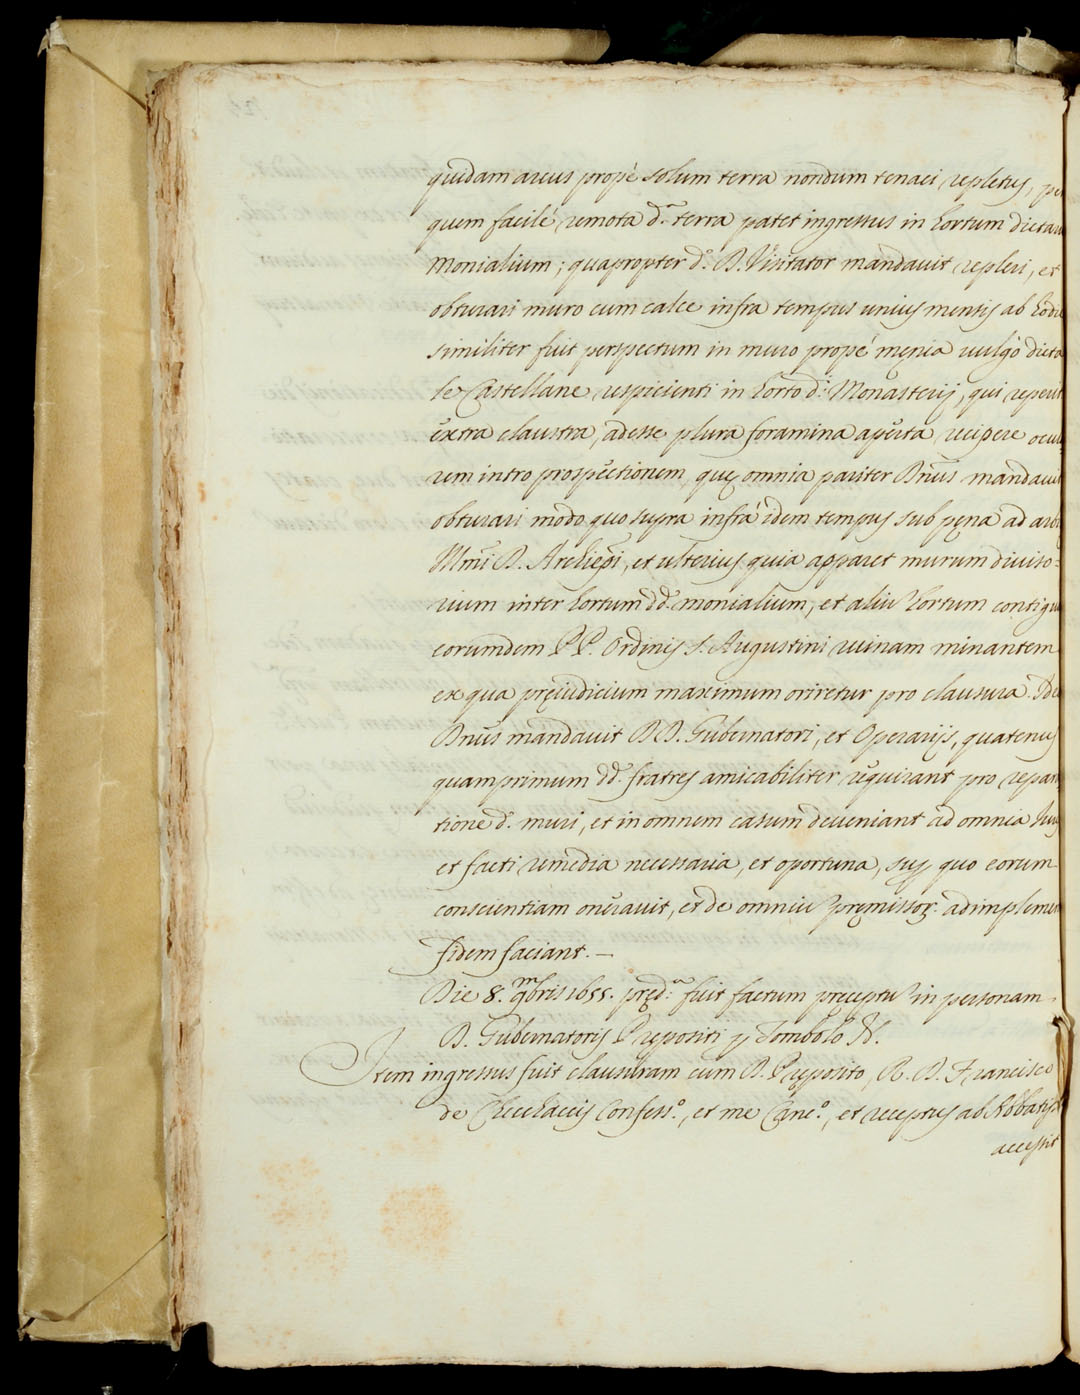 quidam arcus propè solum terra nondum tenaci repletus, per
quem facilè remota d.ª terra patet ingressus in hortum dictaru
Monialium; quapropter d.º D. Visitator mandavit repleri, et
obturari muro cum calce infra tempus unius mensis ab hodie
similiter fuit perspectum in muro propè męnia vulgò dicta
le Castellane respicienti in horto d.i Monasterij, qui reperit
extra claustra, adesse plura foramina aperta recipere
rem intro prospectionem, quę omnia pariter Dnus mandavit
obturari modo quo supra infrà idem tempus sub pęna ad arbi
Illmi D. Archiepi, et ulterius quia apparet murum diviso=
rium inter hortum dd. monialium, et aliu hortum contigu
eorumdem PP. Ordinis S. Augustini ruinam minantem
ex qua pręiudicium maximum oriretur pro clausura. Ide
Dnus mandavit DD. Gubernatori, et Operarijs, quatenus
quamprimum dd. fratres amicabiliter requirant pro repara
tione d. muri, et in omnem casum deveniant ad omnia Iuris
et facti remedia necessaria, et oportuna, sup quo eorum
conscientiam oneravit, et de omniu pręmissor. adimplemen
fidem faciant. —
Die 8. 9mbris 1655. pręd.ª fuit factum preceptu in personam
D. Gubernatoris Prepositi p Tombolo N.
Item ingressus fuit clausuram cum D. Preposito, R. D. Francisco
de Checchaccijs Confess.º, et me Canc.º, et receptus ab Abbatissa
accessit